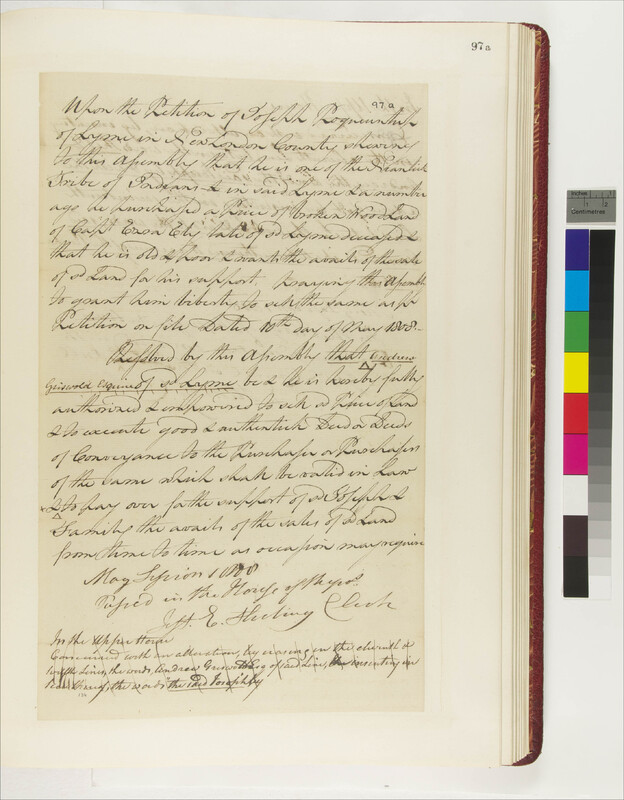 97a
97.a
Upon the Petition of Joseph
of Lyme in New London County shewing
to this Assembly that he is one of the Niantick
Tribe of Indians & in said Lyme & a number
ago he purchased a Piece of Broken Wood Land
of Capt Ely late of sd Lyme deceased &
that he is old & poor & wants the avails of the sale
of sd Land for his support. praying this Assembly
to grant him liberty to sell the same as pr
Petition on file Dated 10th day of May 1808-
Resolved by this Assembly that Andrew
Griswold Esquire of sd Lyme be & he is hereby fully
authorized & empowered to sell sd Piece of Land
& to execute good & authentick Deed or Deeds
of Conveyance to the Purchaser or Purchasers
of the same which shall be valid in Law
& to pay over for the support of sd Joseph &
Family the avails of the sales of sd Land
from time to time as occasion may require
May Session 1808
Passed in the House of Reps.
Att. E. Clerk
In the Upper House
Concurred with an alteration, by erasing in the eleventh &
twelfth Lines, the words, Andrew Griswold Esq of said Lime, & inserting in
the words the said Joseph
Inches
Centimetres